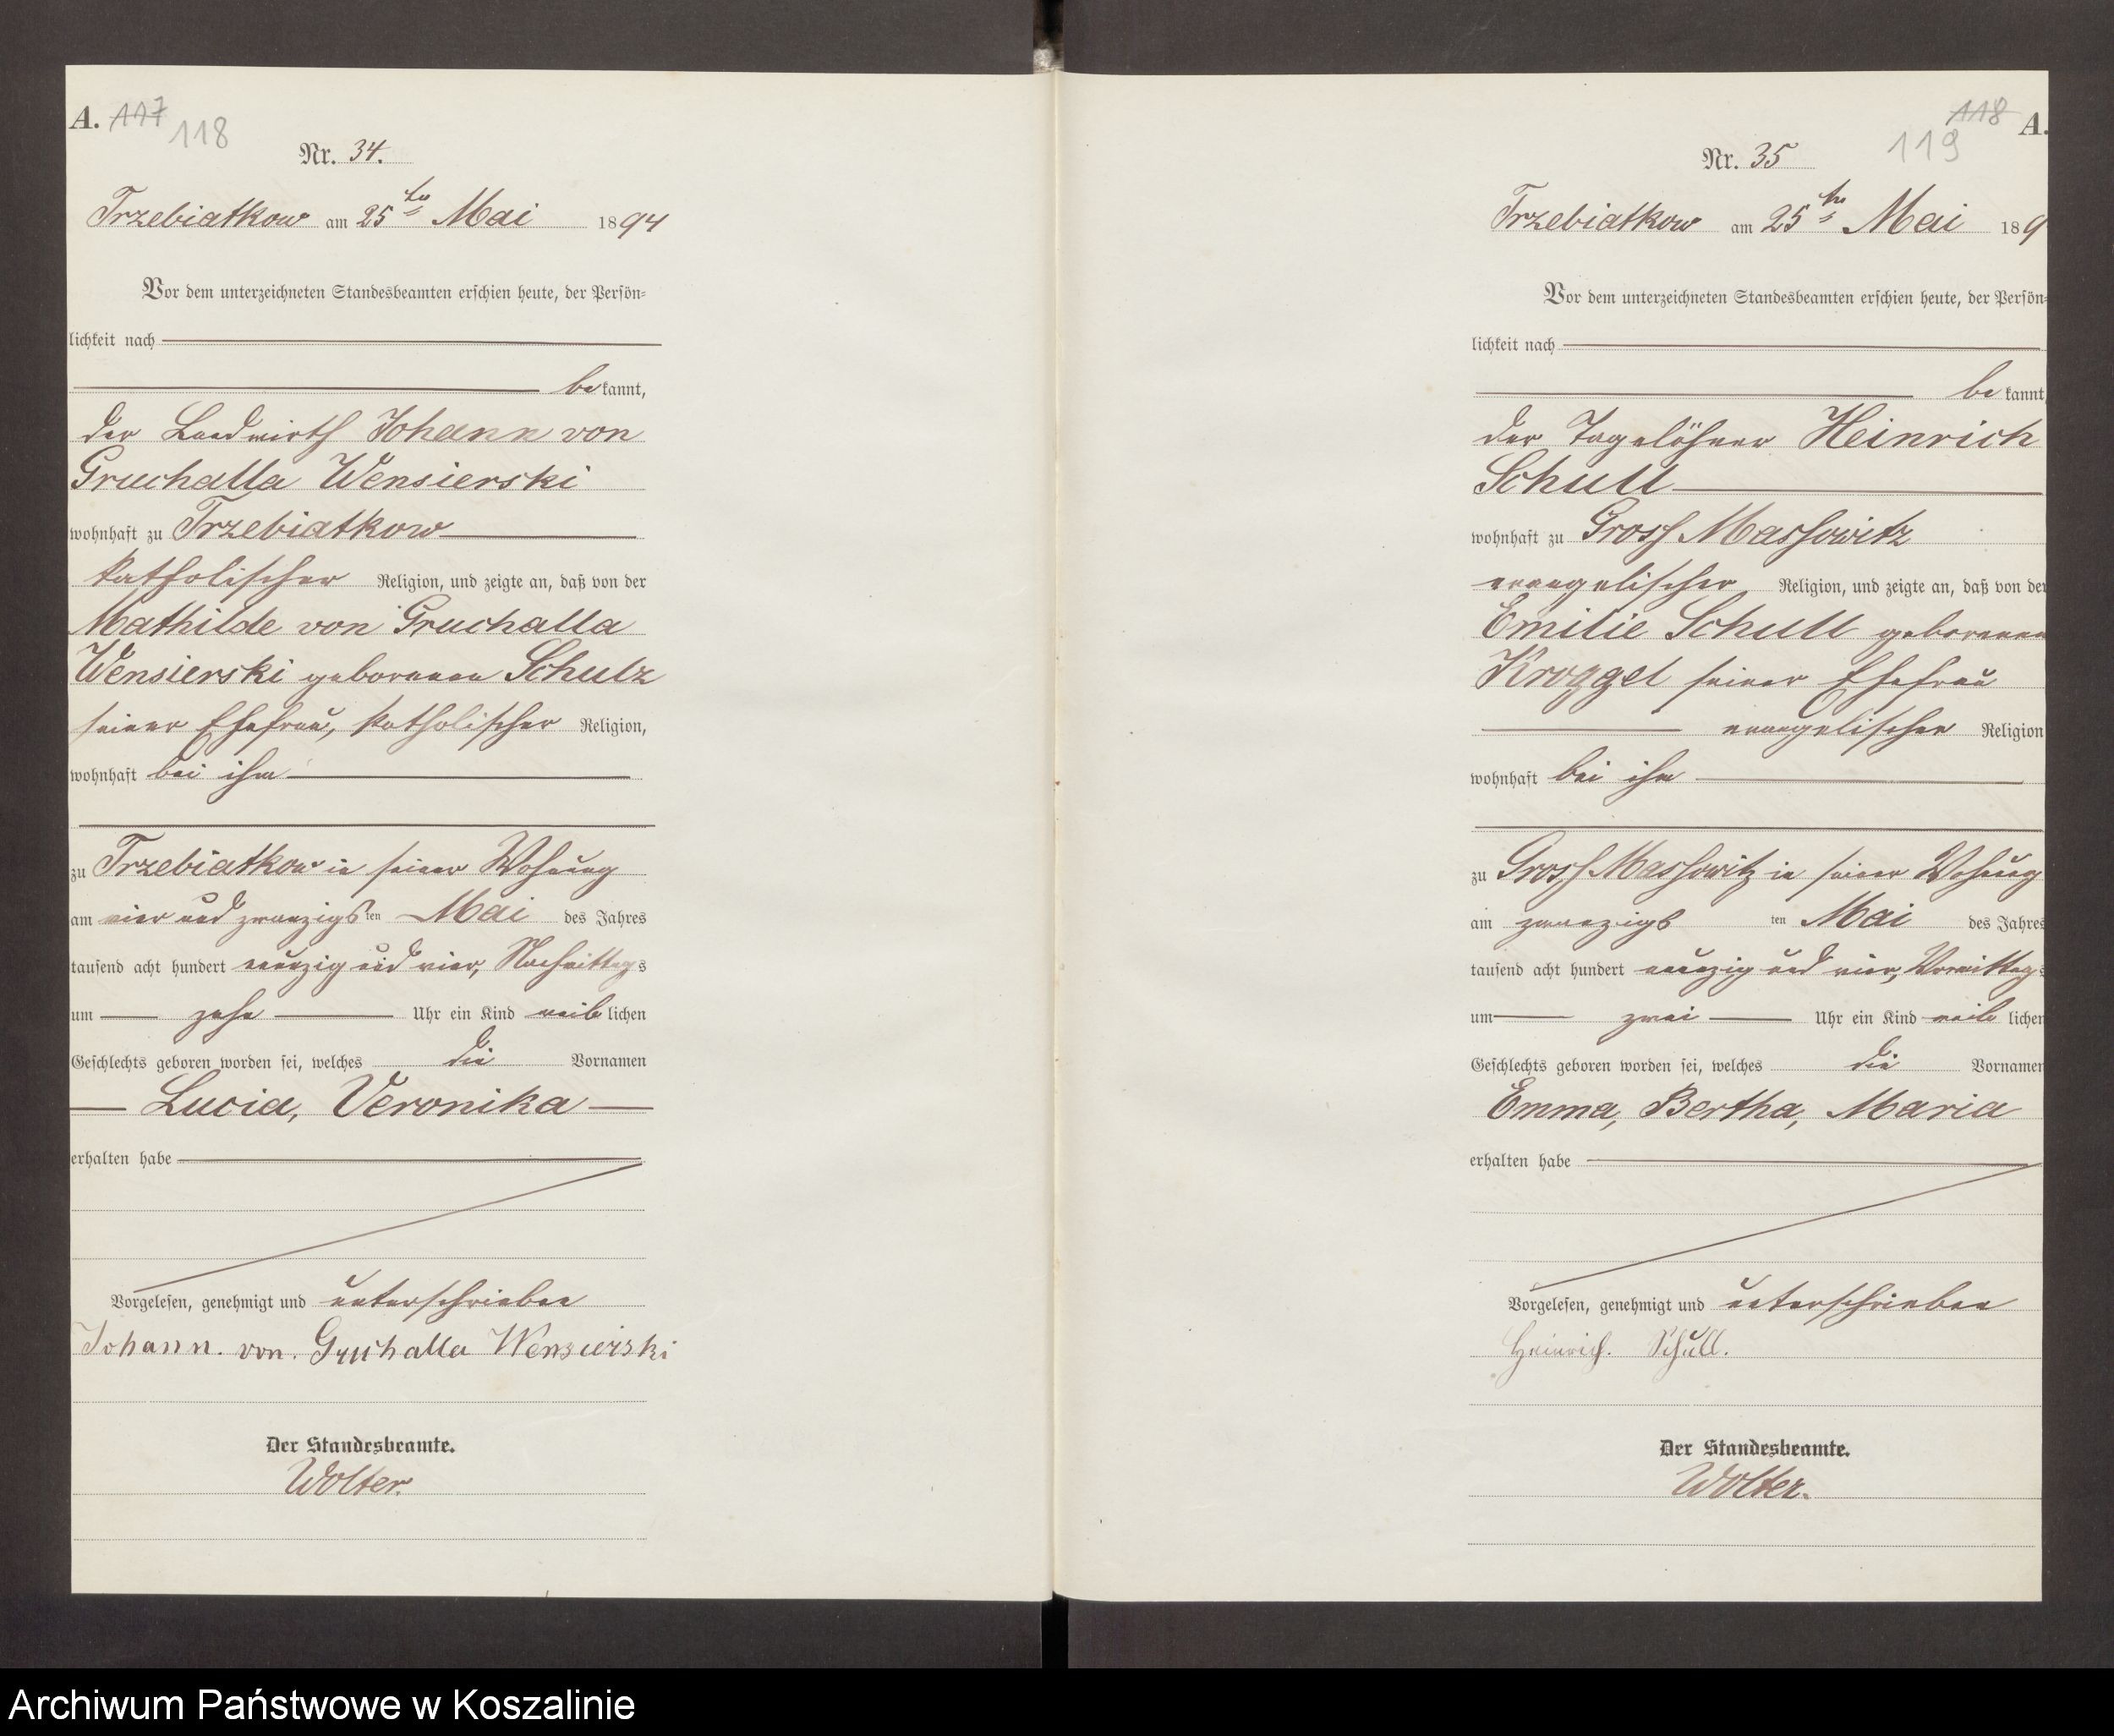 A. 117
118
Nr. 34.
Trzebiatkow am 25ten Mai 1894
Vor dem unterzeichneten Standesbeamten erschien heute, der Persön-
lichkeit nach
be kannt,
der Landwirth Johann von
Gruchalla Wensierski
wohnhaft zu Trzebiatkow
katholischer Religion, und zeigte an, daß von der
Mathilde von Gruchalla
Wensierski geborenen Schulz
seiner Ehefrau, katholischer Religion,
wohnhaft bei ihm
zu Trzebiatkow in seiner Wohnung
am vier und zwanzigsten Mai des Jahres
tausend acht hundert neunzig und vier, Nachmittags
um zehn Uhr ein Kind weib lichen
Geschlechts geboren worden sei, welches die Vornamen
Lucia, Veronika
erhalten habe
Vorgelesen, genehmigt und unterschrieben
Johann. von. Gruchalla Wensierski
Der Standesbeamte.
Wolter.
118 A.
119
Nr. 35
Trzebiatkow am 25ten Mai 189
Vor dem unterzeichneten Standesbeamten erschien heute, der Persön-
lichkeit nach
be kannt,
der Tagelöhner Heinrich
Schull
wohnhaft zu Gross Massowitz
evangelischer Religion, und zeigte an, daß von der
Emilie Schull geborenen
Kroggel seiner Ehefrau
evangelischer Religion
wohnhaft bei ihm
zu Gross Massowitz in seiner Wohnung
am zwanzigsten Mai des Jahres
tausend acht hundert neunzig und vier, Vormittags
um zwei Uhr ein Kind weib lichen
Geschlechts geboren worden sei, welches die Vornamen
Emma, Bertha, Maria
erhalten habe
Vorgelesen, genehmigt und unterschrieben
Heinrich. Schull.
Der Standesbeamte.
Wolter.
Archiwum Państwowe w Koszalinie